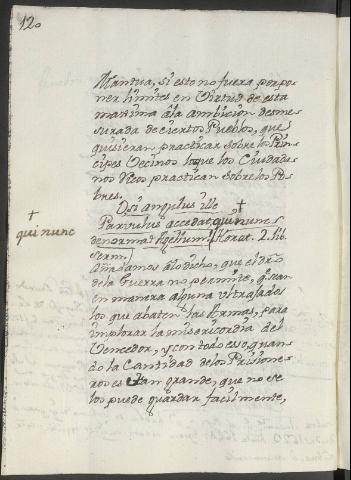 120
Mantua, si esto no fuera perpo
ner limites en Virtud de esta
maxima âla ambicion desme
surada de ciertos Pueblos, que
quisieran practicar sobre los Prin
cipes Vecinos loque los Ciudada
nos Ricos practican sobre los Po
bres.
O si angulus ille
Parvulus accedat, qui nunc
denormat Agellum! Horat. 2. lib.
serm.
+
qui nunc
Añadamos âlo dicho, que el dro
dela Guerra no permite, q.e sean
en manera alguna ultrajados
los que abaten las Armas, para
implorar la misericordia del
Vencedor, y con todo eso, quan
do la Cantidad delos Prisione
ros es tan grande, que no se
los puede guardar facilmente,